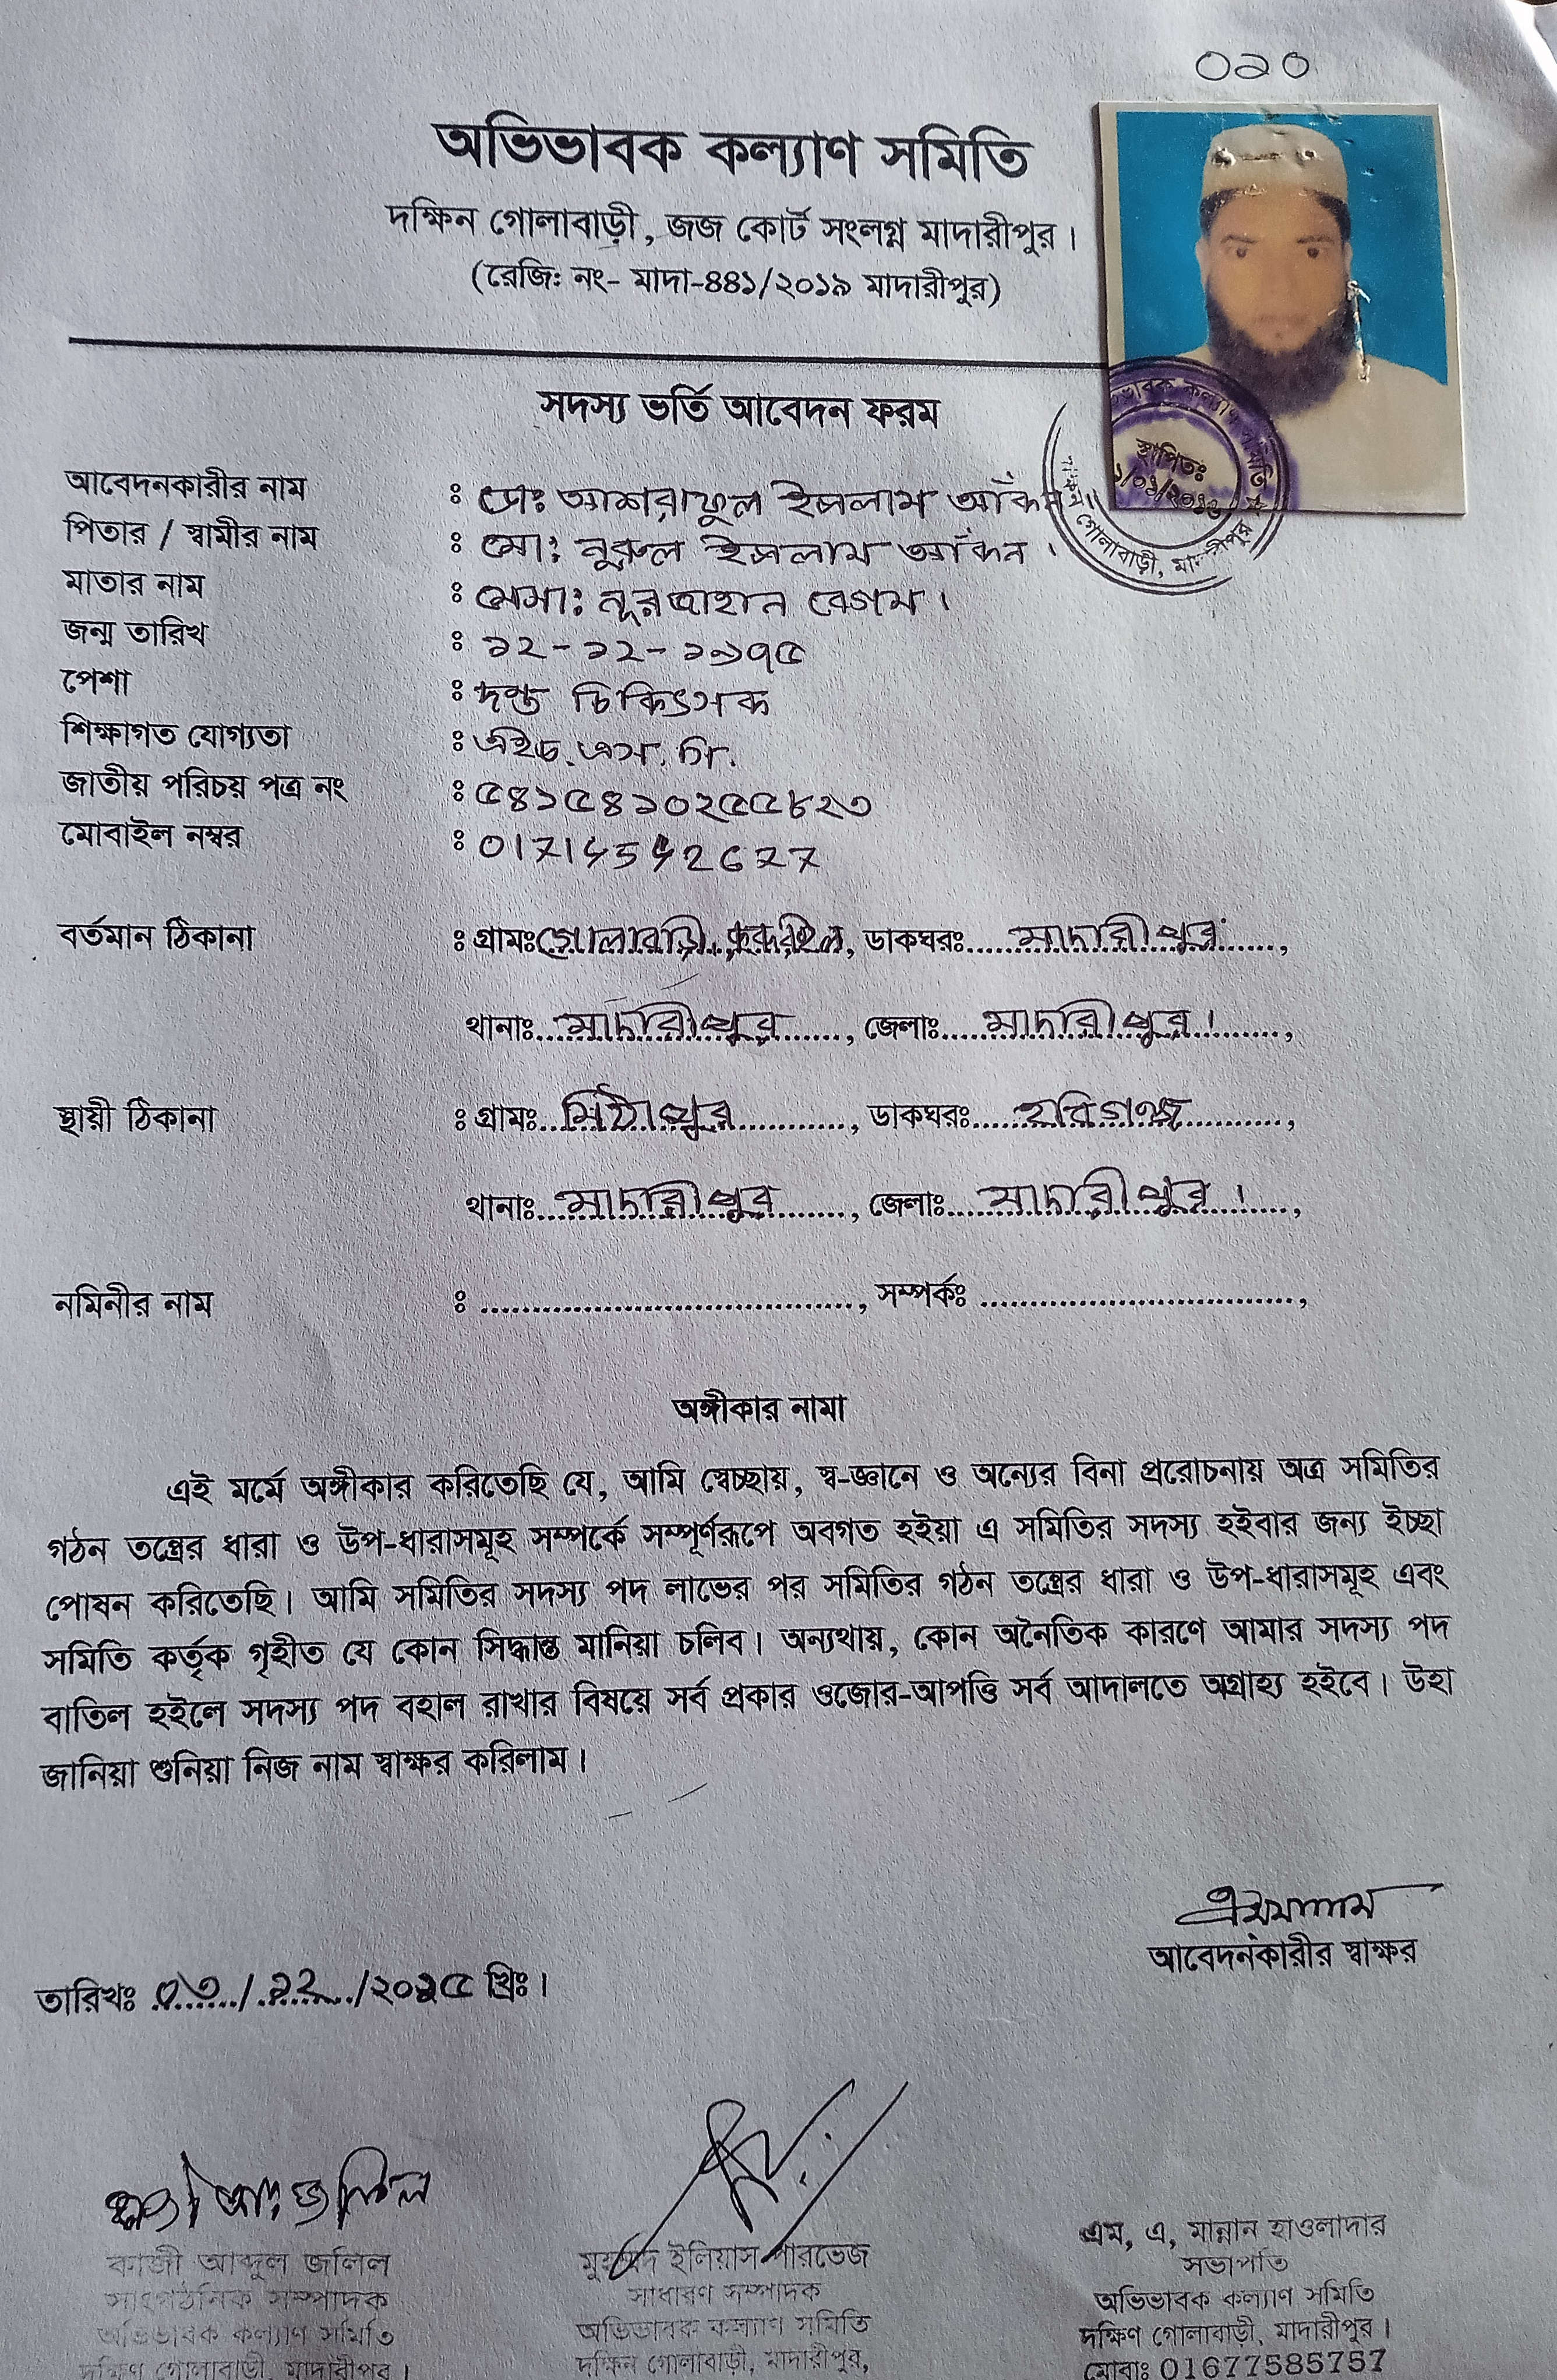 ০১০
অভিভাবক কল্যাণ সমিতি
দক্ষিন গোলাবাড়ী, জজ কোর্ট সংলগ্ন মাদারীপুর।
(রেজি: নং- মাদা-৪৪১/২০১৯ মাদারীপুর)
সদস্য ভর্তি আবেদন ফরম
আবেদনকারীর নাম : মো: আশরাফুল ইসলাম আঁকন।
পিতার / স্বামীর নাম : মো: নুরুল ইসলাম আঁকন।
মাতার নাম : মোসা: নূরজাহান বেগম।
জন্ম তারিখ : ১২-১২-১৯৭৫
পেশা : দন্ত চিকিৎসক
শিক্ষাগত যোগ্যতা : এইচ.এস.সি.
জাতীয় পরিচয় পত্র নং : ৫৪১৫৪১০২৫৫৮২৩
মোবাইল নম্বর : 01714542677
বর্তমান ঠিকানা : গ্রামঃ গোলাবাড়ী, ডাকঘরঃ মাদারীপুর,
থানাঃ মাদারীপুর, জেলাঃ মাদারীপুর।,
স্থায়ী ঠিকানা : গ্রামঃ মিঠাপুর, ডাকঘরঃ হরিগঞ্জ,
থানাঃ মাদারীপুর, জেলাঃ মাদারীপুর।,
নমিনীর নাম : ...................................., সম্পর্কঃ ................................,
অঙ্গীকার নামা
এই মর্মে অঙ্গীকার করিতেছি যে, আমি স্বেচ্ছায়, স্ব-জ্ঞানে ও অন্যের বিনা প্ররোচনায় অত্র সমিতির
গঠন তন্ত্রের ধারা ও উপ-ধারাসমূহ সম্পর্কে সম্পূর্ণরূপে অবগত হইয়া এ সমিতির সদস্য হইবার জন্য ইচ্ছা
পোষন করিতেছি। আমি সমিতির সদস্য পদ লাভের পর সমিতির গঠন তন্ত্রের ধারা ও উপ-ধারাসমূহ এবং
সমিতি কর্তৃক গৃহীত যে কোন সিদ্ধান্ত মানিয়া চলিব। অন্যথায়, কোন অনৈতিক কারণে আমার সদস্য পদ
বাতিল হইলে সদস্য পদ বহাল রাখার বিষয়ে সর্ব প্রকার ওজোর-আপত্তি সর্ব আদালতে অগ্রাহ্য হইবে। উহা
জানিয়া শুনিয়া নিজ নাম স্বাক্ষর করিলাম।
আবেদনকারীর স্বাক্ষর
তারিখঃ ০৩/১২/২০১৫ খ্রিঃ।
কাজী আব্দুল জলিল
সাংগঠনিক সম্পাদক
অভিভাবক কল্যাণ সমিতি
দক্ষিণ গোলাবাড়ী, মাদারীপুর।
মুহম্মদ ইলিয়াস পারভেজ
সাধারণ সম্পাদক
অভিভাবক কল্যাণ সমিতি
দক্ষিন গোলাবাড়ী, মাদারীপুর,
এম, এ, মান্নান হাওলাদার
সভাপতি
অভিভাবক কল্যাণ সমিতি
দক্ষিণ গোলাবাড়ী, মাদারীপুর।
মোবাঃ 01677585757